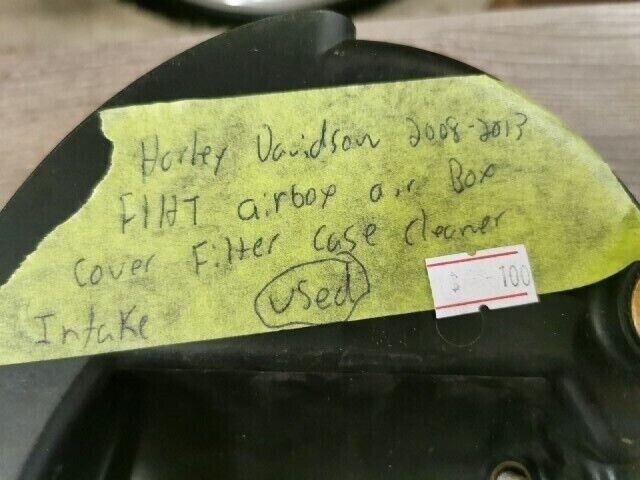 Harley Davidson 2008-2013
FlHT airbox air Box
cover Filter case cleaner
Intake used
$ 100